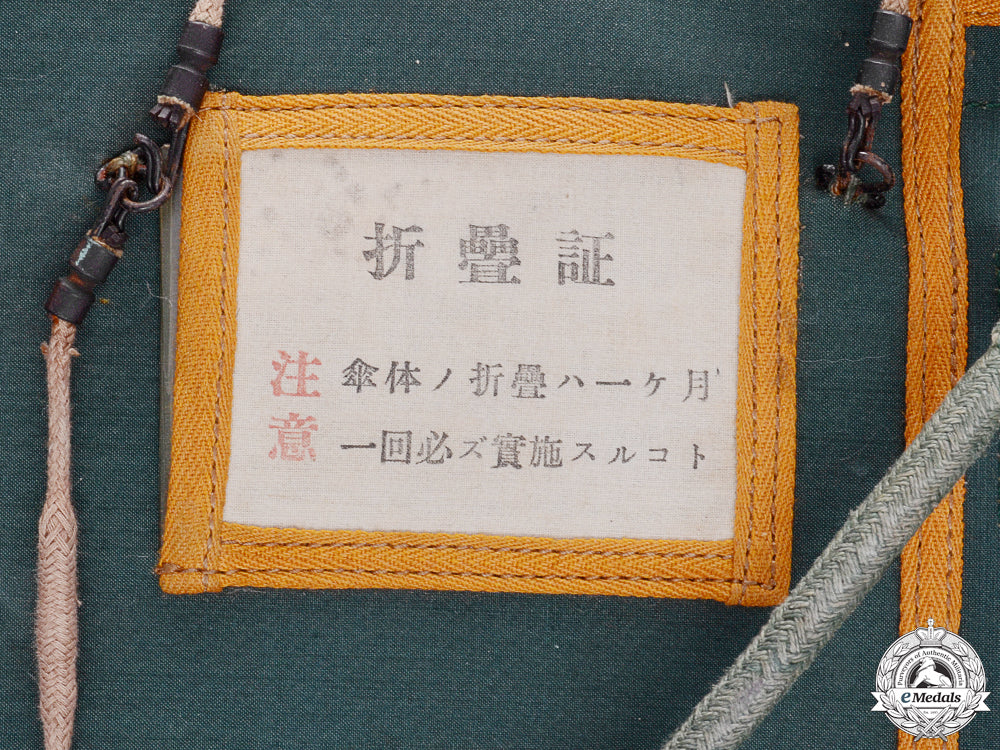 折疊証
注意
傘体ノ折疊ハ一ケ月
一回必ズ實施スルコト
Purveyors of Authentic Militaria
eMedals